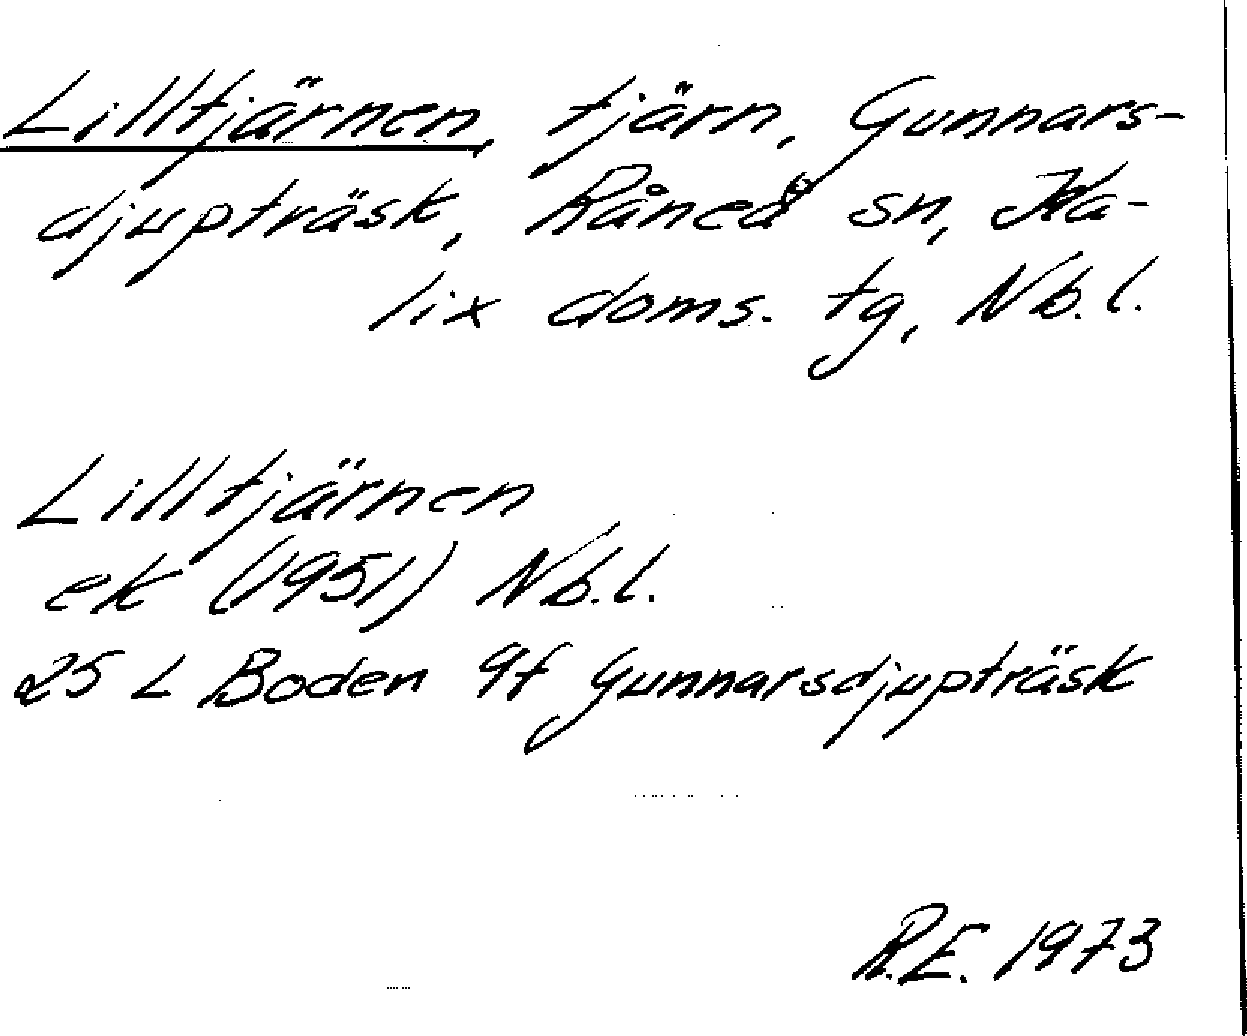 Lilltjärnen, tjärn, Gunnars-
djupträsk, Råneå sn, Ka-
lix doms. tg, Nb. l.
Lilltjärnen
ek (1951) Nb. l.
25 L Boden 9f Gunnarsdjupträsk
R.E. 1973